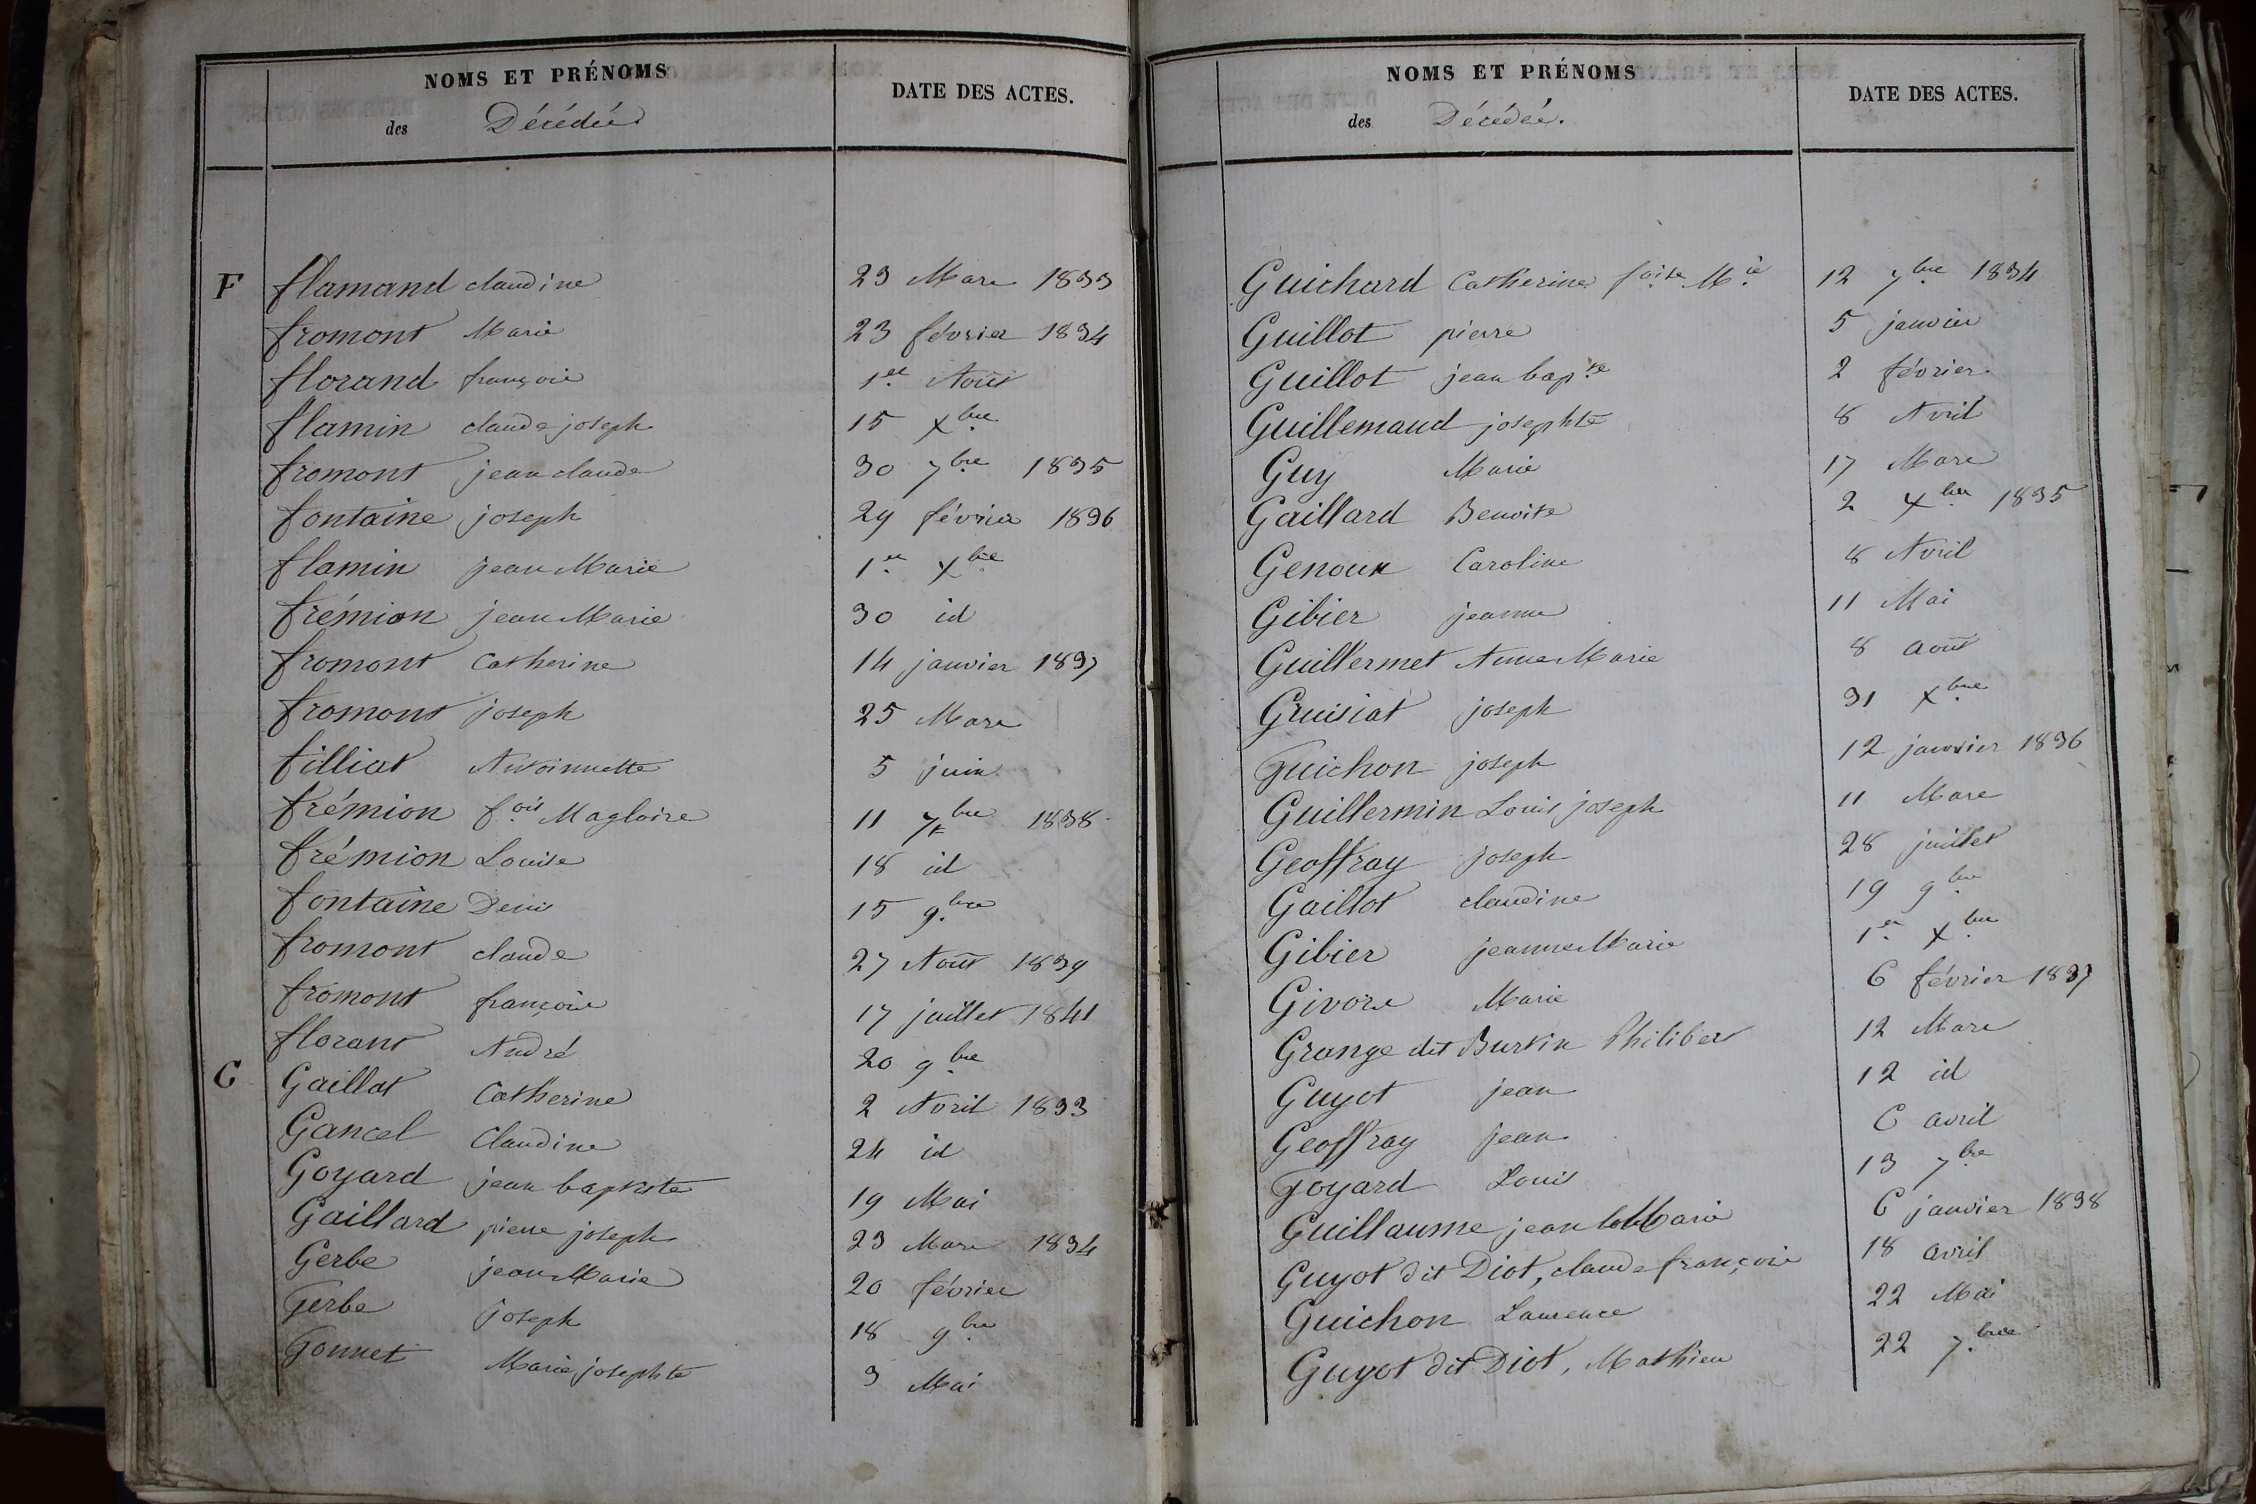 NOMS ET PRÉNOMS
des Décédés
DATE DES ACTES.
F flamand claudine 23 Mars 1833
fromont Marie 23 février 1834
florand françois 1er Août
flamin claude joseph 15 Xbre
fromont jean claude 30 7bre 1835
fontaine joseph 29 février 1836
flamin jean Marie 1er Xbre
frémion jean Marie 30 id
fromont Catherine 14 janvier 1837
fromont joseph 25 Mars
filliat Antoinnette 5 juin
frémion fois Magloire 11 7bre 1838
frémion Louise 18 id
fontaine Denis 15 9bre
fromont claude 27 Août 1839
fromont françois 17 juillet 1841
florant André 20 9bre
G Gaillat Catherine 2 Avril 1833
Gancel Claudine 24 id
Goyard jean baptiste 19 Mai
Gaillard pierre joseph 23 Mars 1834
Gerbe jean Marie 20 février
Gerbe joseph 18 9bre
Gonnet Marie josephte 3 Mai
NOMS ET PRÉNOMS
des Décédés.
DATE DES ACTES.
Guichard Catherine foise Mie 12 7bre 1834
Guillot pierre 5 janvier
Guillot jean bapte 2 février
Guillemaud josephte 8 Avril
Guy Marie 17 Mars
Gaillard Benoite 2 Xbre 1835
Genoux Caroline 8 Avril
Gibier jeanne 11 Mai
Guillermet Anne Marie 8 août
Gruisiat joseph 31 Xbre
Guichon joseph 12 janvier 1836
Guillermin Louis joseph 11 Mars
Geoffray joseph 28 juillet
Gaillot claudine 19 9bre
Gibier jeanne Marie 1er Xbre
Givors Marie 6 février 1837
Grange dit Burtin Philibert 12 Mars
Guyot jean 12 id
Geoffray jean 6 avril
Goyard Louis 13 7bre
Guillaume jean Marie 6 janvier 1838
Guyot dit Diot, claude françois 18 avril
Guichon Laurence 22 Mai
Guyot dit Diot, Mathieu 22 7bre